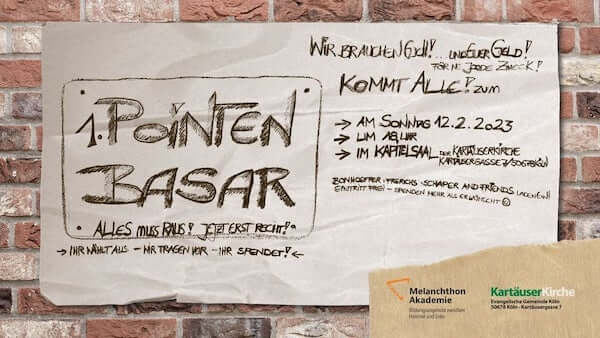 WIR BRAUCHEN EUCH! ... UND EUER GELD!
FÜR NE JOODE ZWECK!
KOMMT ALLE! ZUM
1. POINTEN
BASAR
ALLES MUSS RAUS! JETZT ERST RECHT!
→ IHR WÄHLT AUS – WIR TRAGEN VOR – IHR SPENDET! ←
→ AM SONNTAG 12.2.2023
→ UM UHR
→ IM KAPITELSAAL DER KARTÄUSERKIRCHE
KARTÄUSERGASSE 7/50678 KÖLN
BONHOEFFER-FRERICHS-SCHAPER AND FRIENDS LADEN EIN!
EINTRITT FREI – SPENDEN MEHR ALS
Melanchthon
Akademie
Bildungsagentur zwischen
Himmel und Erde
KartäuserKirche
Evangelische Gemeinde Köln
50678 Köln · Kartäusergasse 7